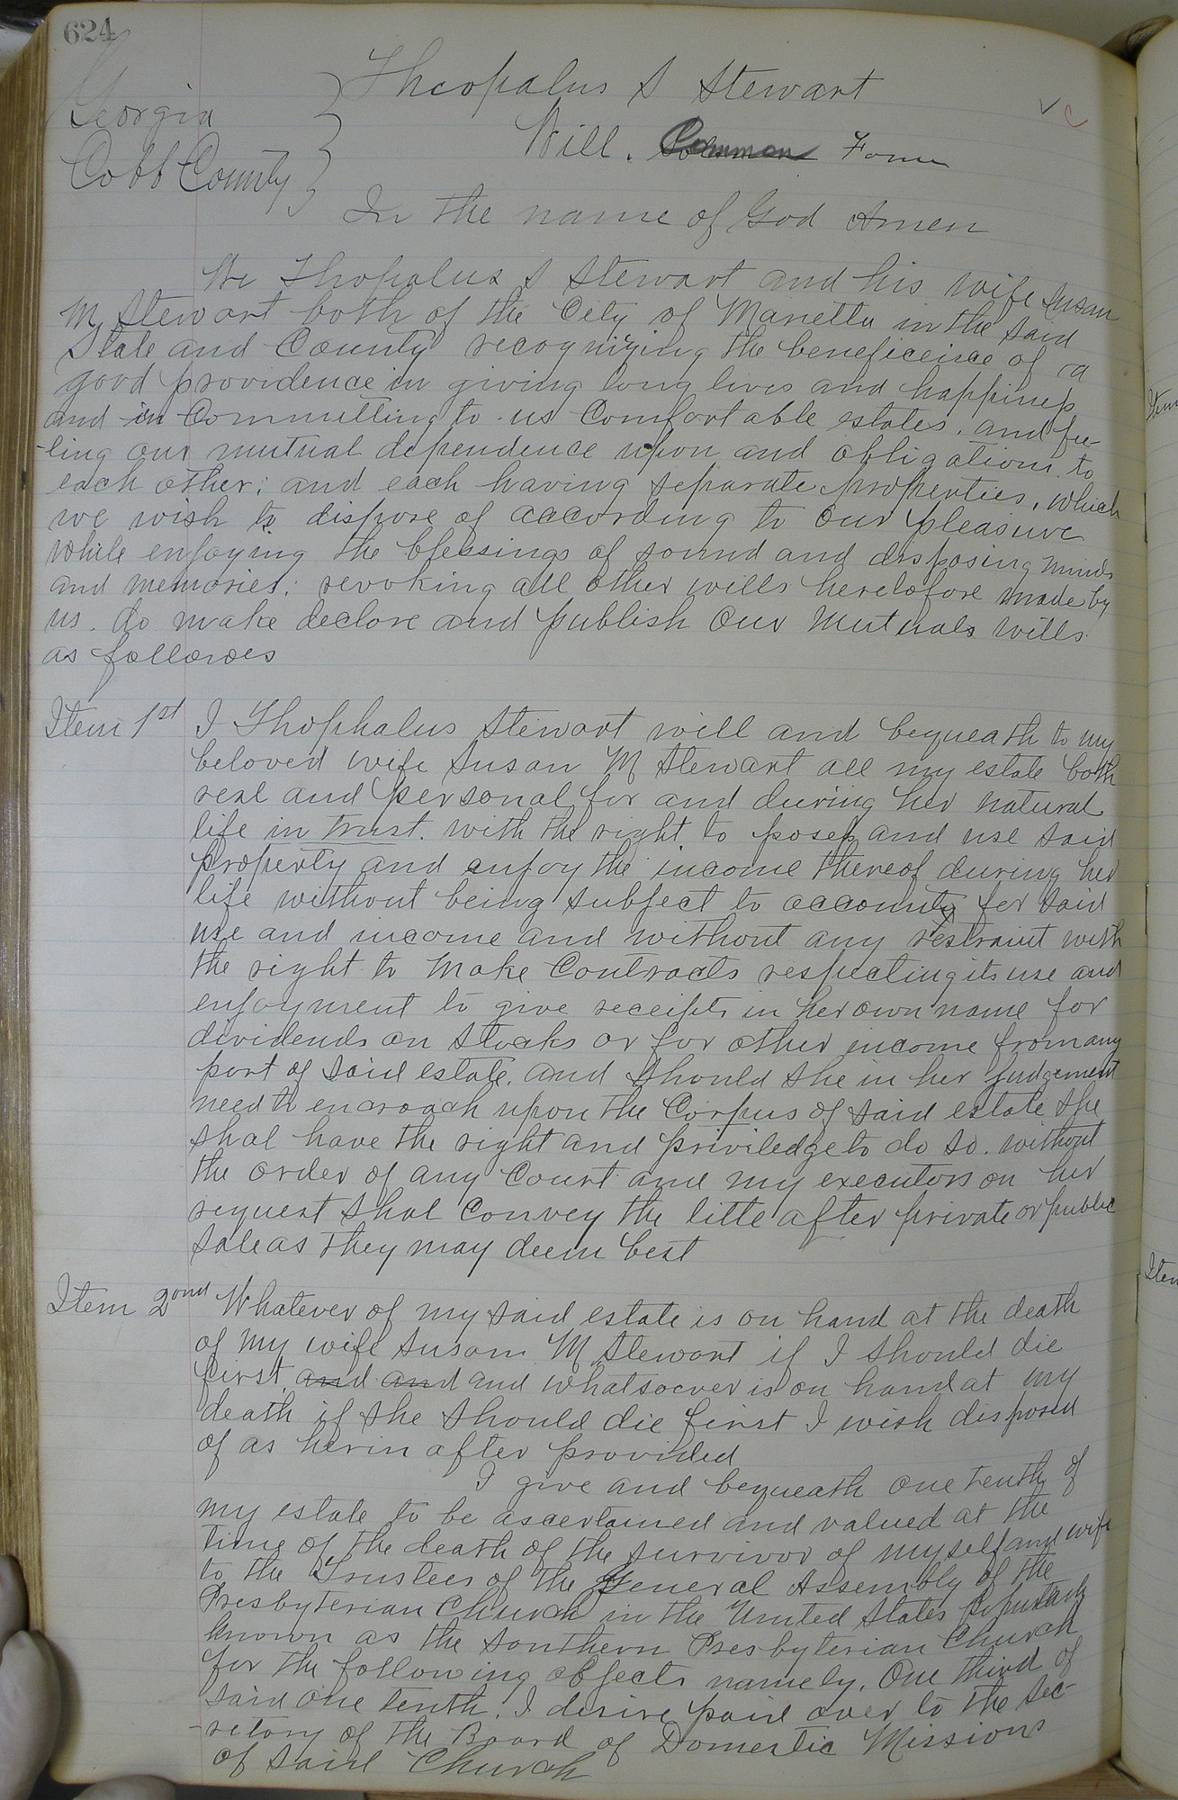 624
Theopalus S Stewart
Georgia
Will. Common Form
Cobb County
In the name of God Amen
We Thopalus S Stewart and his wife Susan
M Stewart both of the City of Marietta in the said
State and County recognizing the beneficeince of a
good providence in giving long lives and happiness
and in Committing to us Comfortable estates, and fee-
-ling our mutual dependence upon and obligations to
each other; and each having separate properties, which
we wish to dispose of according to our pleasure
while enjoying the blessings of sound and disposing minds
and memories; revoking all other wills heretofore made by
us. do make declare and publish our Mutuals wills
as followes
Item 1st I Thophalus Stewart will and bequeath to my
beloved wife Susan M Stewart all my estate both
real and personal for and during her natural
life in trust. with the right to posess and use said
property and enjoy the income thereof during her
life without being subject to account for said
use and income and without any restraint with
the right to make Contracts respecting its use and
enjoyment to give receipts in her own name for
dividends on Stocks or for other income from any
part of said estate. and should she in her judgement
need to encroach upon the Corpus of said estate she
shal have the right and priviledge to do so. without
the order of any Court and my executors on her
request shal convey the title after private or public
sale as they may deem best
Item 2ond Whatever of my said estate is on hand at the death
of my wife Susan M Stewart if I should die
first and and and whatsoever is on hand at my
death if she should die first I wish disposed
of as herin after provided
I give and bequeath one tenth of
my estate to be ascertained and valued at the
time of the death of the survivor of myself and wife
to the Trustees of the General Assembly of the
Presbyterian Church in the United States
known as the Southern Presbyterian Church
for the following objects namely. One third of
said one tenth. I desire paid over to the Sec-
-retory of the Board of Domestic Missions
of said Church
Item
Item